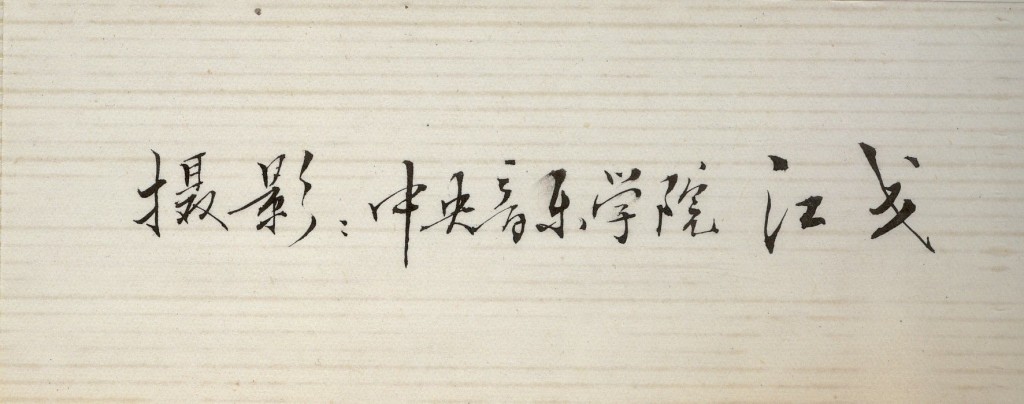 摄影：中央音乐学院 江戈